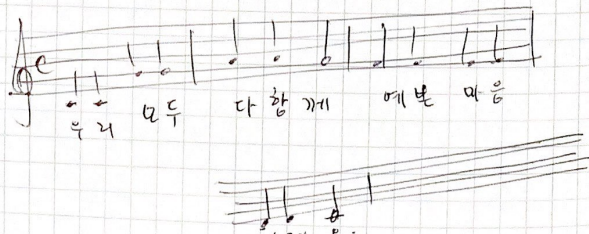 우리 모두 다함께 예쁜 마음